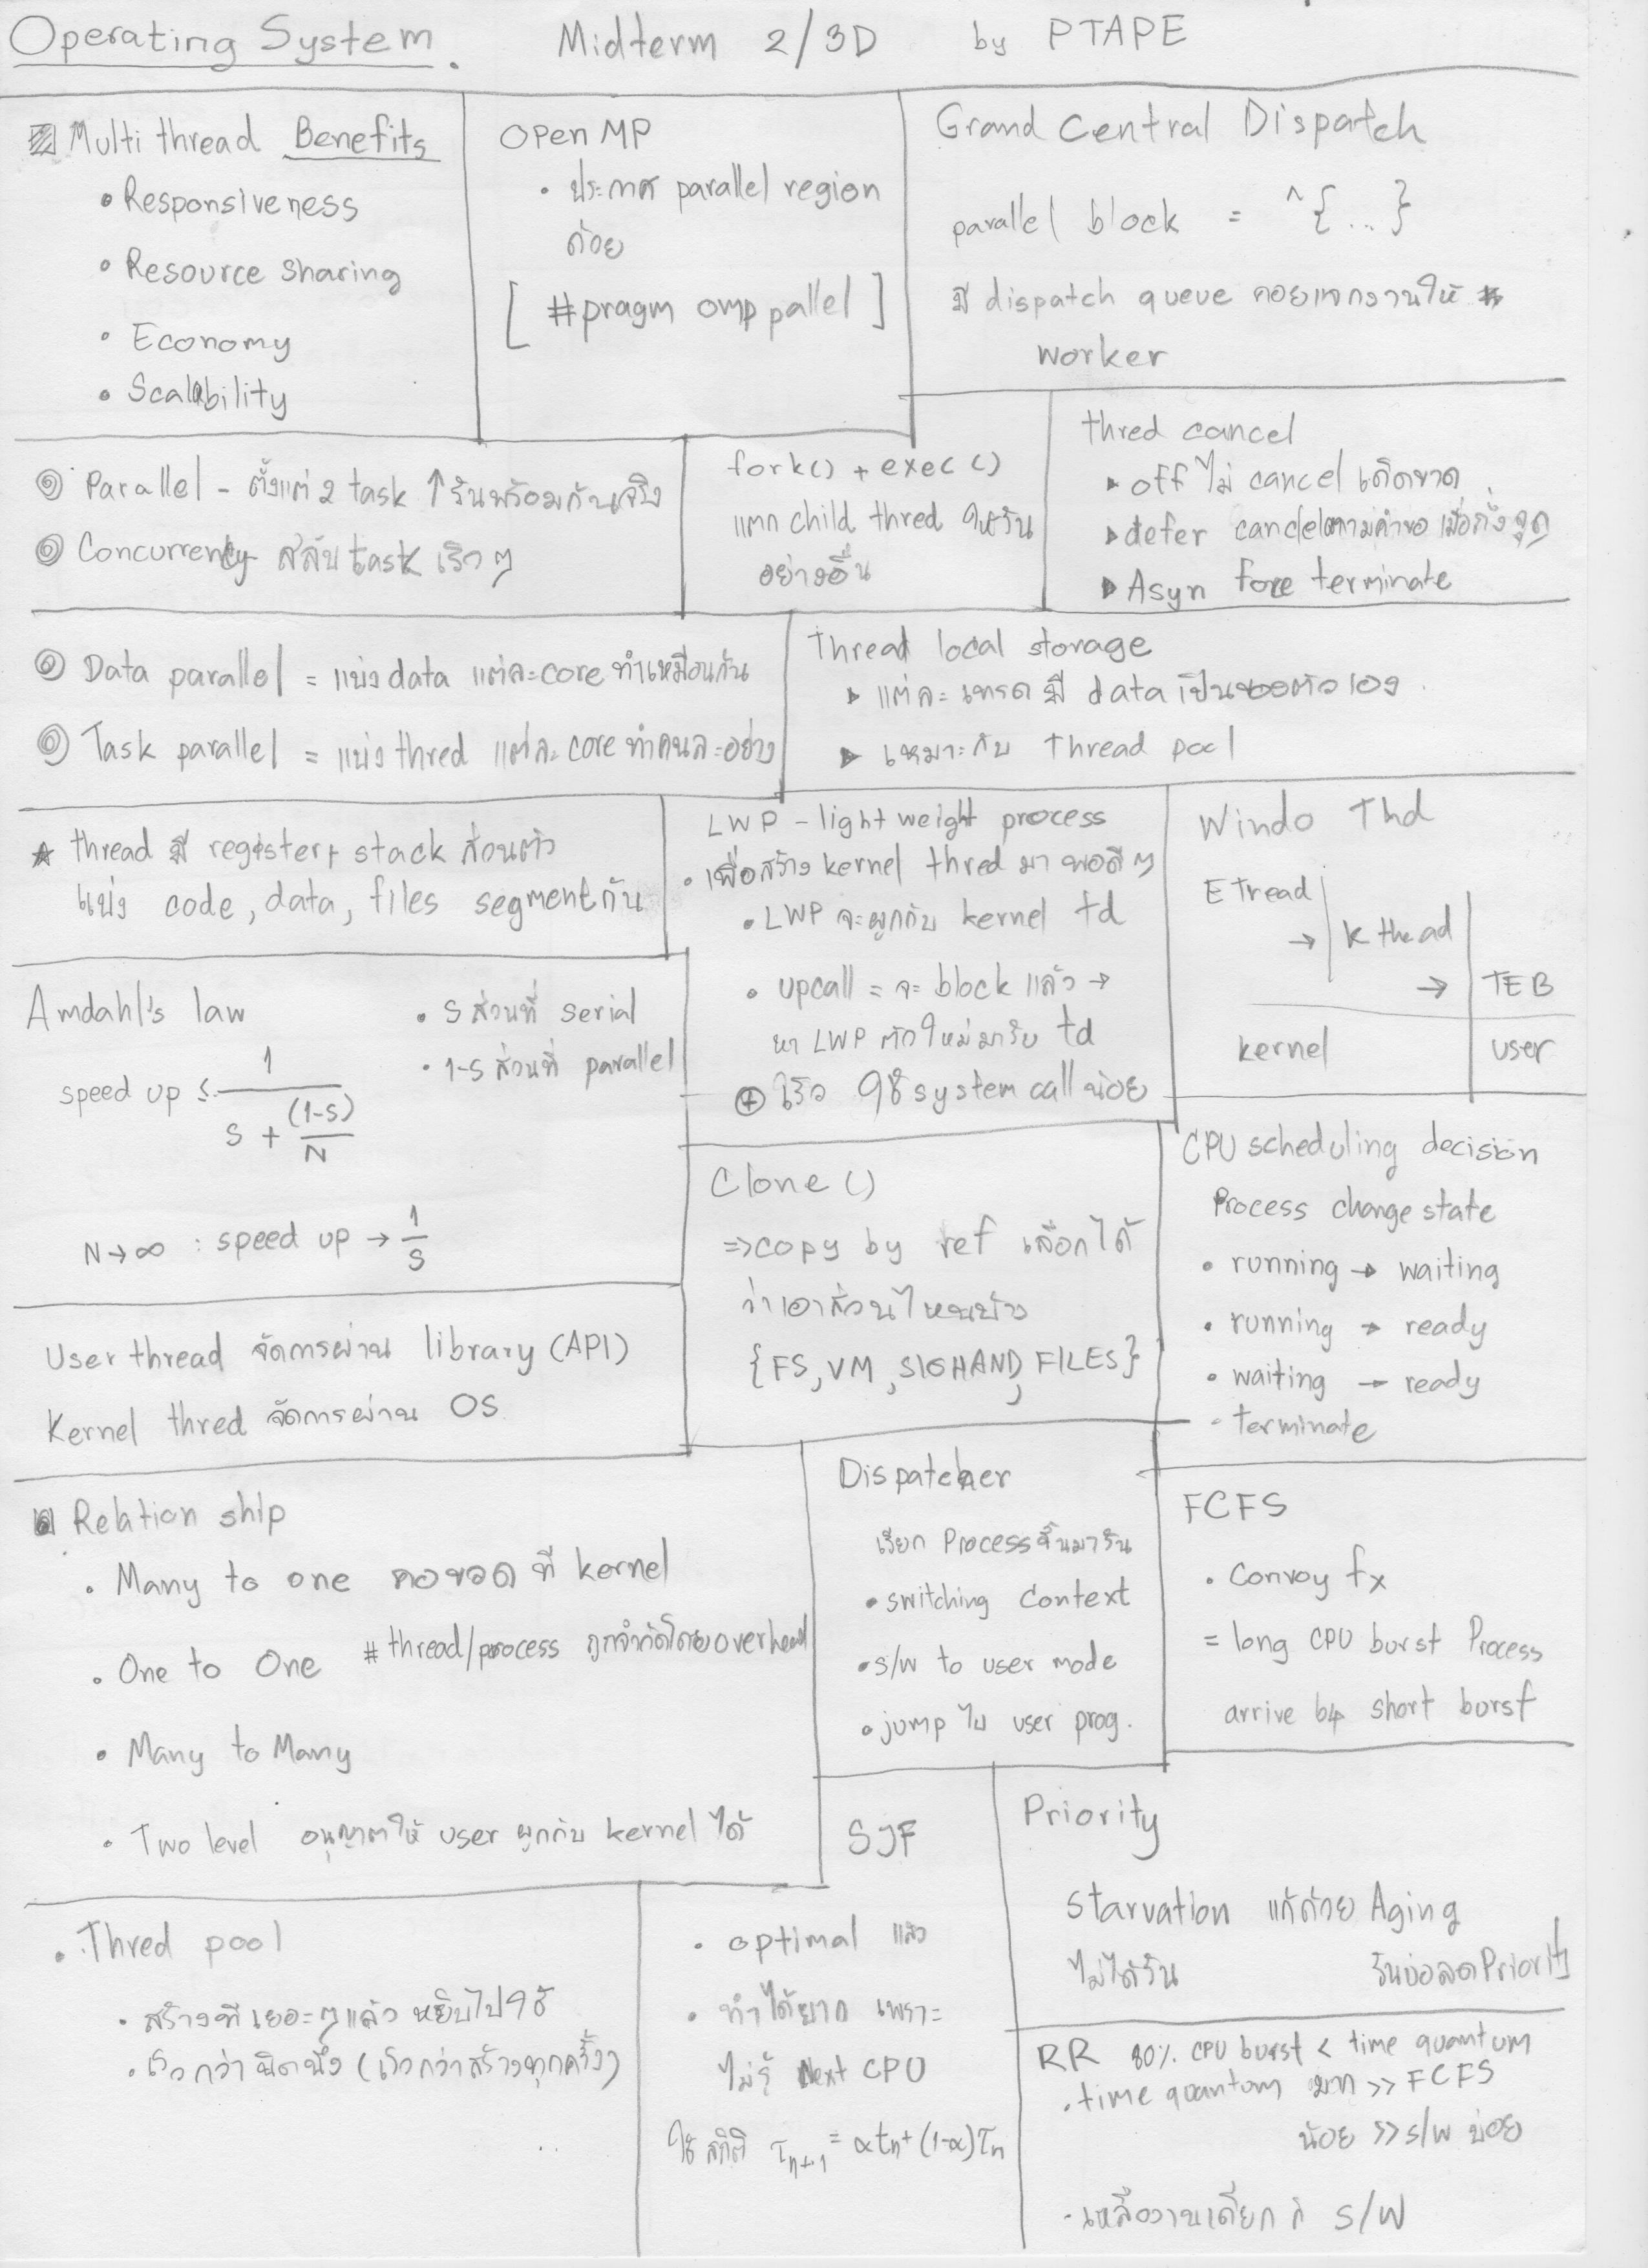 Operating System. Midterm 2/3D by PTAPE
Multi thread Benefits
• Responsiveness
• Resource sharing
• Economy
• Scalability
Open MP
• ประกาศ parallel region
ด้วย
[ #pragm omp pallel ]
Grand Central Dispatch
parallel block = ^{...}
มี dispatch queue คอยแจกงานให้
worker
Parallel - ตั้งแต่ 2 task ↑ รันพร้อมกันจริง
Concurrency สลับ task เร็วๆ
fork() + exec()
แตก child thred ให้รัน
อย่างอื่น
thred cancel
▸ off ไม่ cancel เด็ดขาด
▸ defer cancel ตามคำขอ เมื่อถึงจุด
▸ Asyn force terminate
Data parallel = แบ่ง data แต่ละ core ทำเหมือนกัน
Task parallel = แบ่ง thred แต่ละ core ทำคนละอย่าง
Thread local storage
▸ แต่ละ เทรด มี data เป็นของตัวเอง
▸ เหมาะกับ Thread pool
★ thread มี register, stack ส่วนตัว
แบ่ง code, data, files segment กัน
LWP - light weight process
• เพื่อสร้าง kernel thred มา พอดีๆ
• LWP จะผูกกับ kernel td
• upcall = จะ block แล้ว →
หา LWP ตัวใหม่มารับ td
⊕ เร็ว ใช้ system call น้อย
Windo Thd
E Tread
→ K thead
→ TEB
kernel user
Amdahl's law
• S ส่วนที่ serial
• 1-S ส่วนที่ parallel
speed up ≤ 1 / (S + (1-S)/N)
N→∞ : speed up → 1/S
Clone ()
=> copy by ref เลือกได้
ว่าเอาส่วนไหนบ้าง
{FS, VM, SIGHAND, FILES}
CPU scheduling decision
Process change state
• running → waiting
• running → ready
• waiting → ready
• terminate
User thread จัดการผ่าน library (API)
Kernel thred จัดการผ่าน OS
Relation ship
• Many to one คอขวด ที่ kernel
• One to One # thread/process ถูกจำกัดโดย overhead
• Many to Many
• Two level อนุญาตให้ user ผูกกับ kernel ได้
Dispatcher
เรียก Process ขึ้นมารัน
• switching Context
• s/w to user mode
• jump ไป user prog.
FCFS
• Convoy fx
= long CPU burst Process
arrive b4 short burst
• Thred pool
• สร้างทีเยอะๆแล้ว หยิบไปใช้
• เร็วกว่านิดนึง (เร็วกว่าสร้างทุกครั้ง)
SJF
• optimal แล้ว
• ทำได้ยาก เพราะ
ไม่รู้ Next CPU
ใช้ สถิติ τn+1 = αtn + (1-α)τn
Priority
Starvation แก้ด้วย Aging
ไม่ได้รัน รันบ่อยลด Priority
RR 80% CPU burst < time quantum
• time quantum มาก >> FCFS
น้อย >> s/w บ่อย
• เหลืองานเดียวก็ s/w